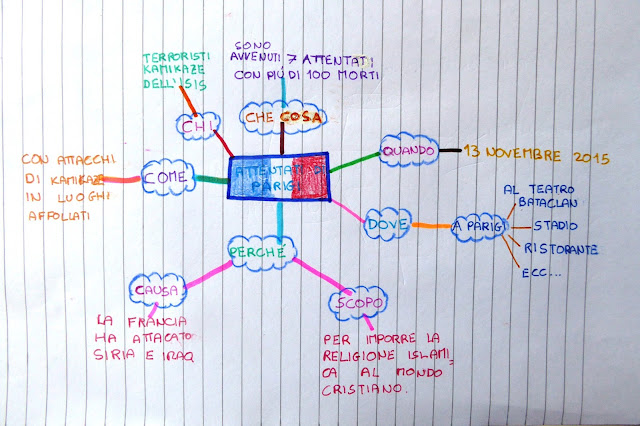 TERRORISTI
KAMIKAZE
DELL'ISIS
SONO
AVVENUTI 7 ATTENTATI
CON PIÙ DI 100 MORTI
CHI
CHE COSA
QUANDO
13 NOVEMBRE 2015
CON ATTACCHI
DI KAMIKAZE
IN LUOGHI
AFFOLLATI
COME
ATTENTATI
PARIGI
DOVE
A PARIGI
AL TEATRO
BATACLAN
STADIO
RISTORANTE
ECC...
PERCHÉ
CAUSA
SCOPO
LA FRANCIA
HA ATTACATO
SIRIA E IRAQ
PER IMPORRE LA
RELIGIONE ISLAMI_
CA AL MONDO
CRISTIANO.